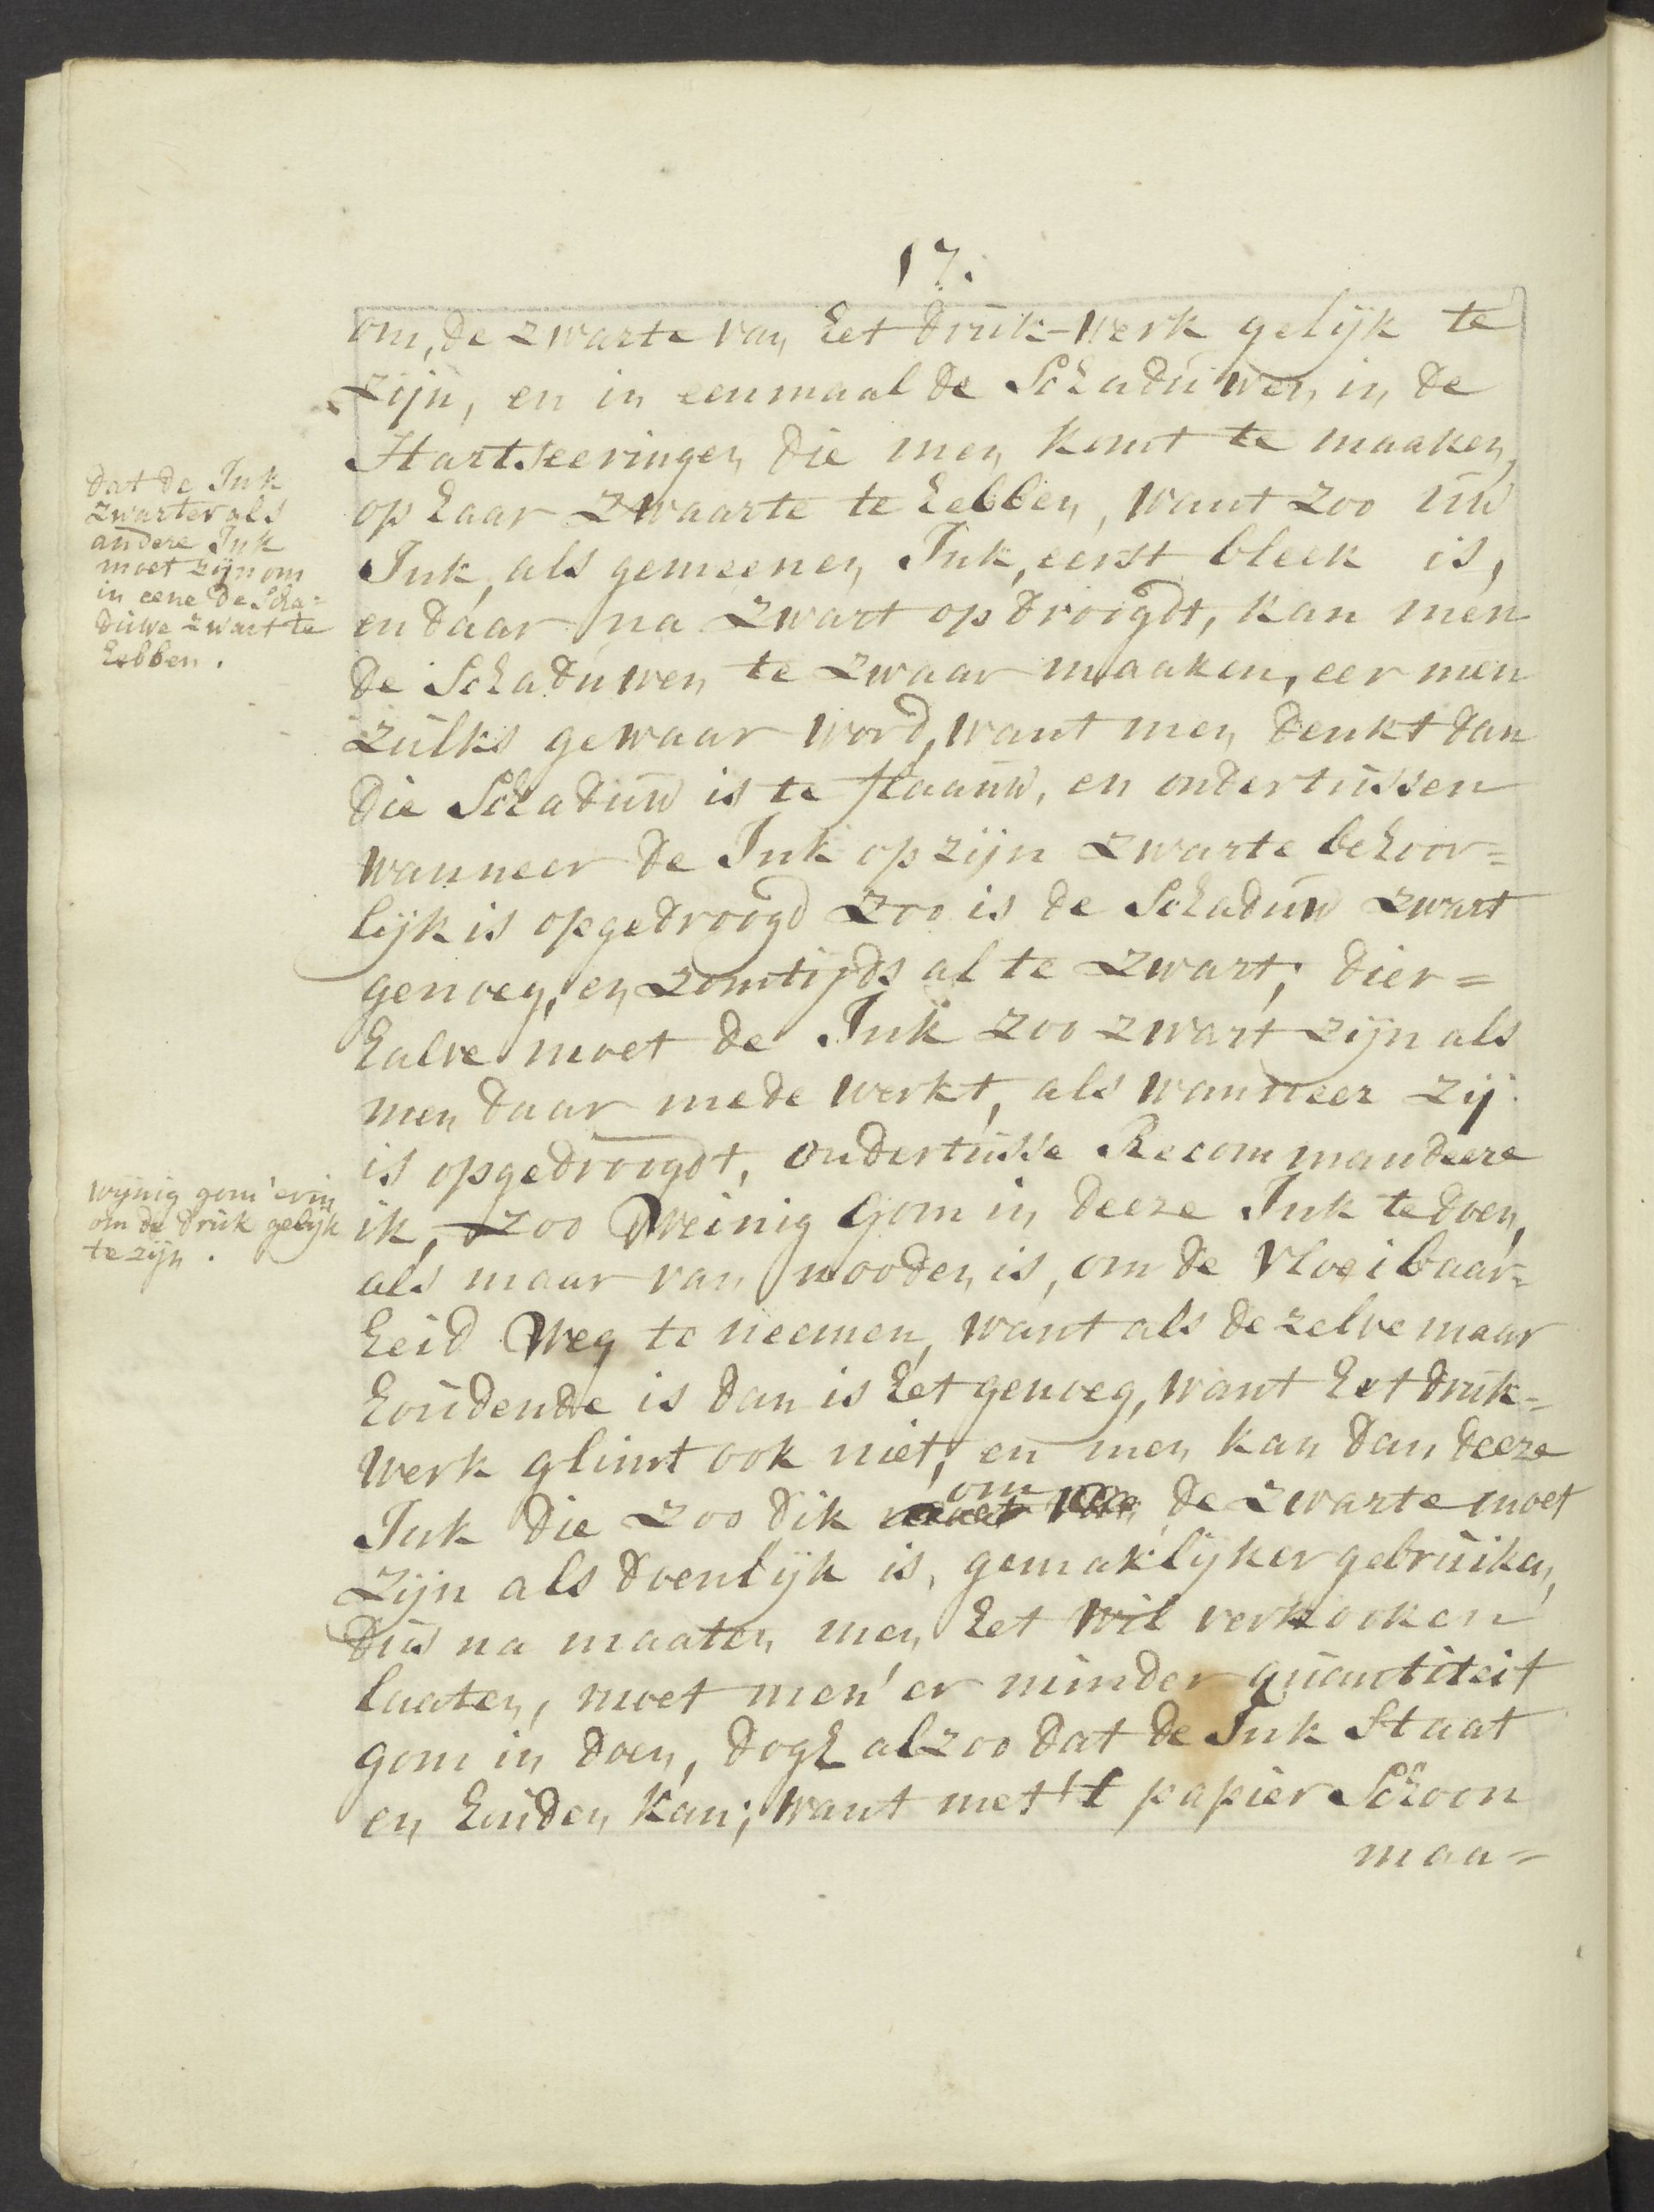 17.
om, de zwarte van het druk-werk gelijk te
zijn, en in eenmaal de Schaduwen in de
Hartseeringen die men komt te maaken,
dat de Ink
zwarter als
andere Ink
moet zijn om
in eene de Scha=
duwe zwart te
hebben.
op haar zwaarte te hebben, want zoo uw
Ink, als gemeenen Ink, eerst bleek is,
en daar na zwart opdroogdt, kan men
de Schaduwen te zwaar maaken, eer men
zulks gewaar word, want men denkt dan
die Schaduw is te flaauw, en ondertussen
wanneer de Ink op zijn zwarte behoor=
lijk is opgedroogd zoo is de Schaduw zwart
genoeg, en zomtijds al te zwart; dier=
halve moet de Ink zoo zwart zijn als
men daar mede werkt, als wanneer zij
is opgedroogdt, ondertusse Recommandeere
wijnig gom 'er in
om de druk gelijk
te zijn.
ik, zoo Weinig Gom in deeze Ink te doen,
als maar van nooden is, om de Vloeibaar=
heid Weg te neemen, want als dezelve maar
houdende is dan is het genoeg, want het druk=
werk glimt ook niet, en men kan dan deeze
Ink die zoo dik om de zwarte moet
zijn als doenlijk is, gemaklijker gebruiken,
dus na maaten men het wil verkooken
laaten, moet men 'er minder quantiteit
gom in doen, dogh alzoo dat de Ink Staat
en houden kan; want met 't papier Schoon
maa=